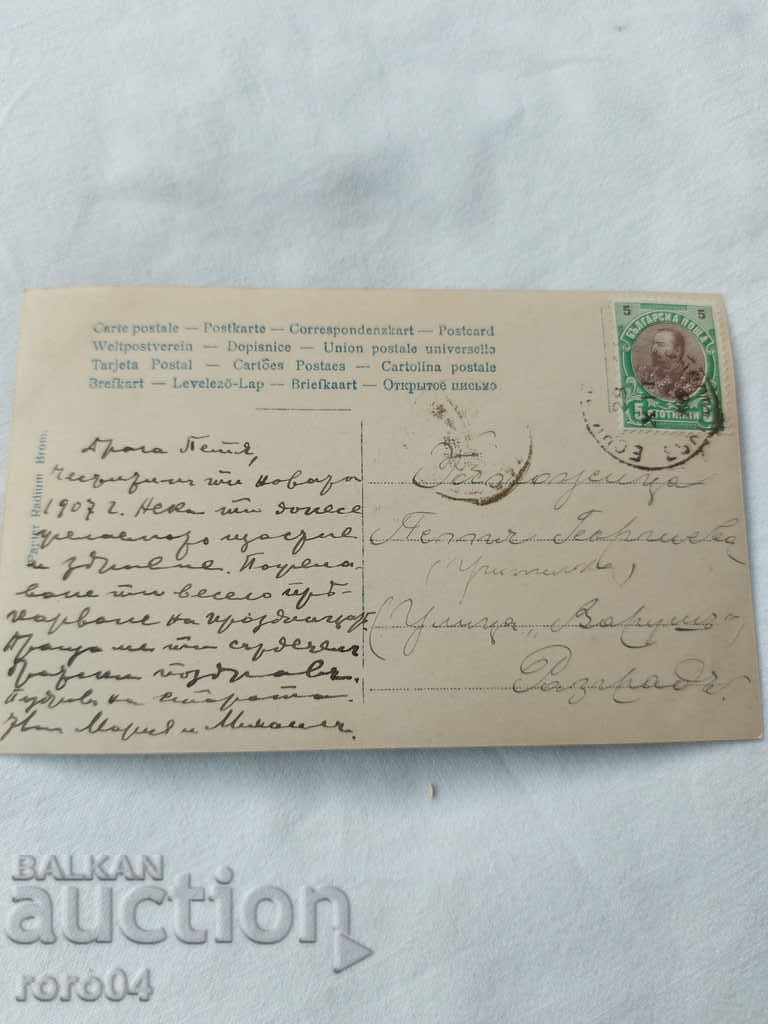 Carte postale — Postkarte — Correspondenzkart — Postcard
Weltpostverein — Dopisnice — Union postale universelle
Tarjeta Postal — Cartões Postaes — Cartolina postale
Brefkart — Levelező-Lap — Briefkaart — Открытое письмо
Papier Radium Brom.
5 5
БЪЛГАРСКА ПОЩА
5 СТОТИНКИ 5
Драга Петя,
честитим ти новата
1907 г. Нека ти донесе
щастие
и здравие. Пожела-
ваме ти весело пръ-
карване на
Праща ме ти сърдечен
поздравъ.
на старата.
Мария и Михаилъ.
Госпожица
Петя Георгиева
(Учителка)
(Улица „Варушъ"
Разградъ.
BALKAN
auction
roro04